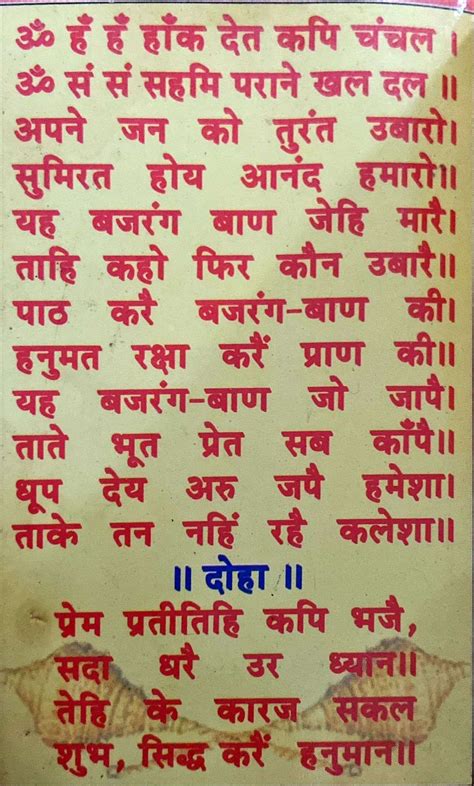 ॐ हँ हँ हाँक देत कपि चंचल ।
ॐ सं सं सहमि पराने खल दल ॥
अपने जन को तुरंत उबारो।
सुमिरत होय आनंद हमारो॥
यह बजरंग बाण जेहि मारै।
ताहि कहो फिर कौन उबारै॥
पाठ करै बजरंग-बाण की।
हनुमत रक्षा करैं प्राण की॥
यह बजरंग-बाण जो जापै।
ताते भूत प्रेत सब काँपै॥
धूप देय अरु जपै हमेशा।
ताके तन नहिं रहै कलेशा॥
॥ दोहा ॥
प्रेम प्रतीतिहि कपि भजै,
सदा धरै उर ध्यान॥
तेहि के कारज सकल
शुभ, सिद्ध करैं हनुमान॥